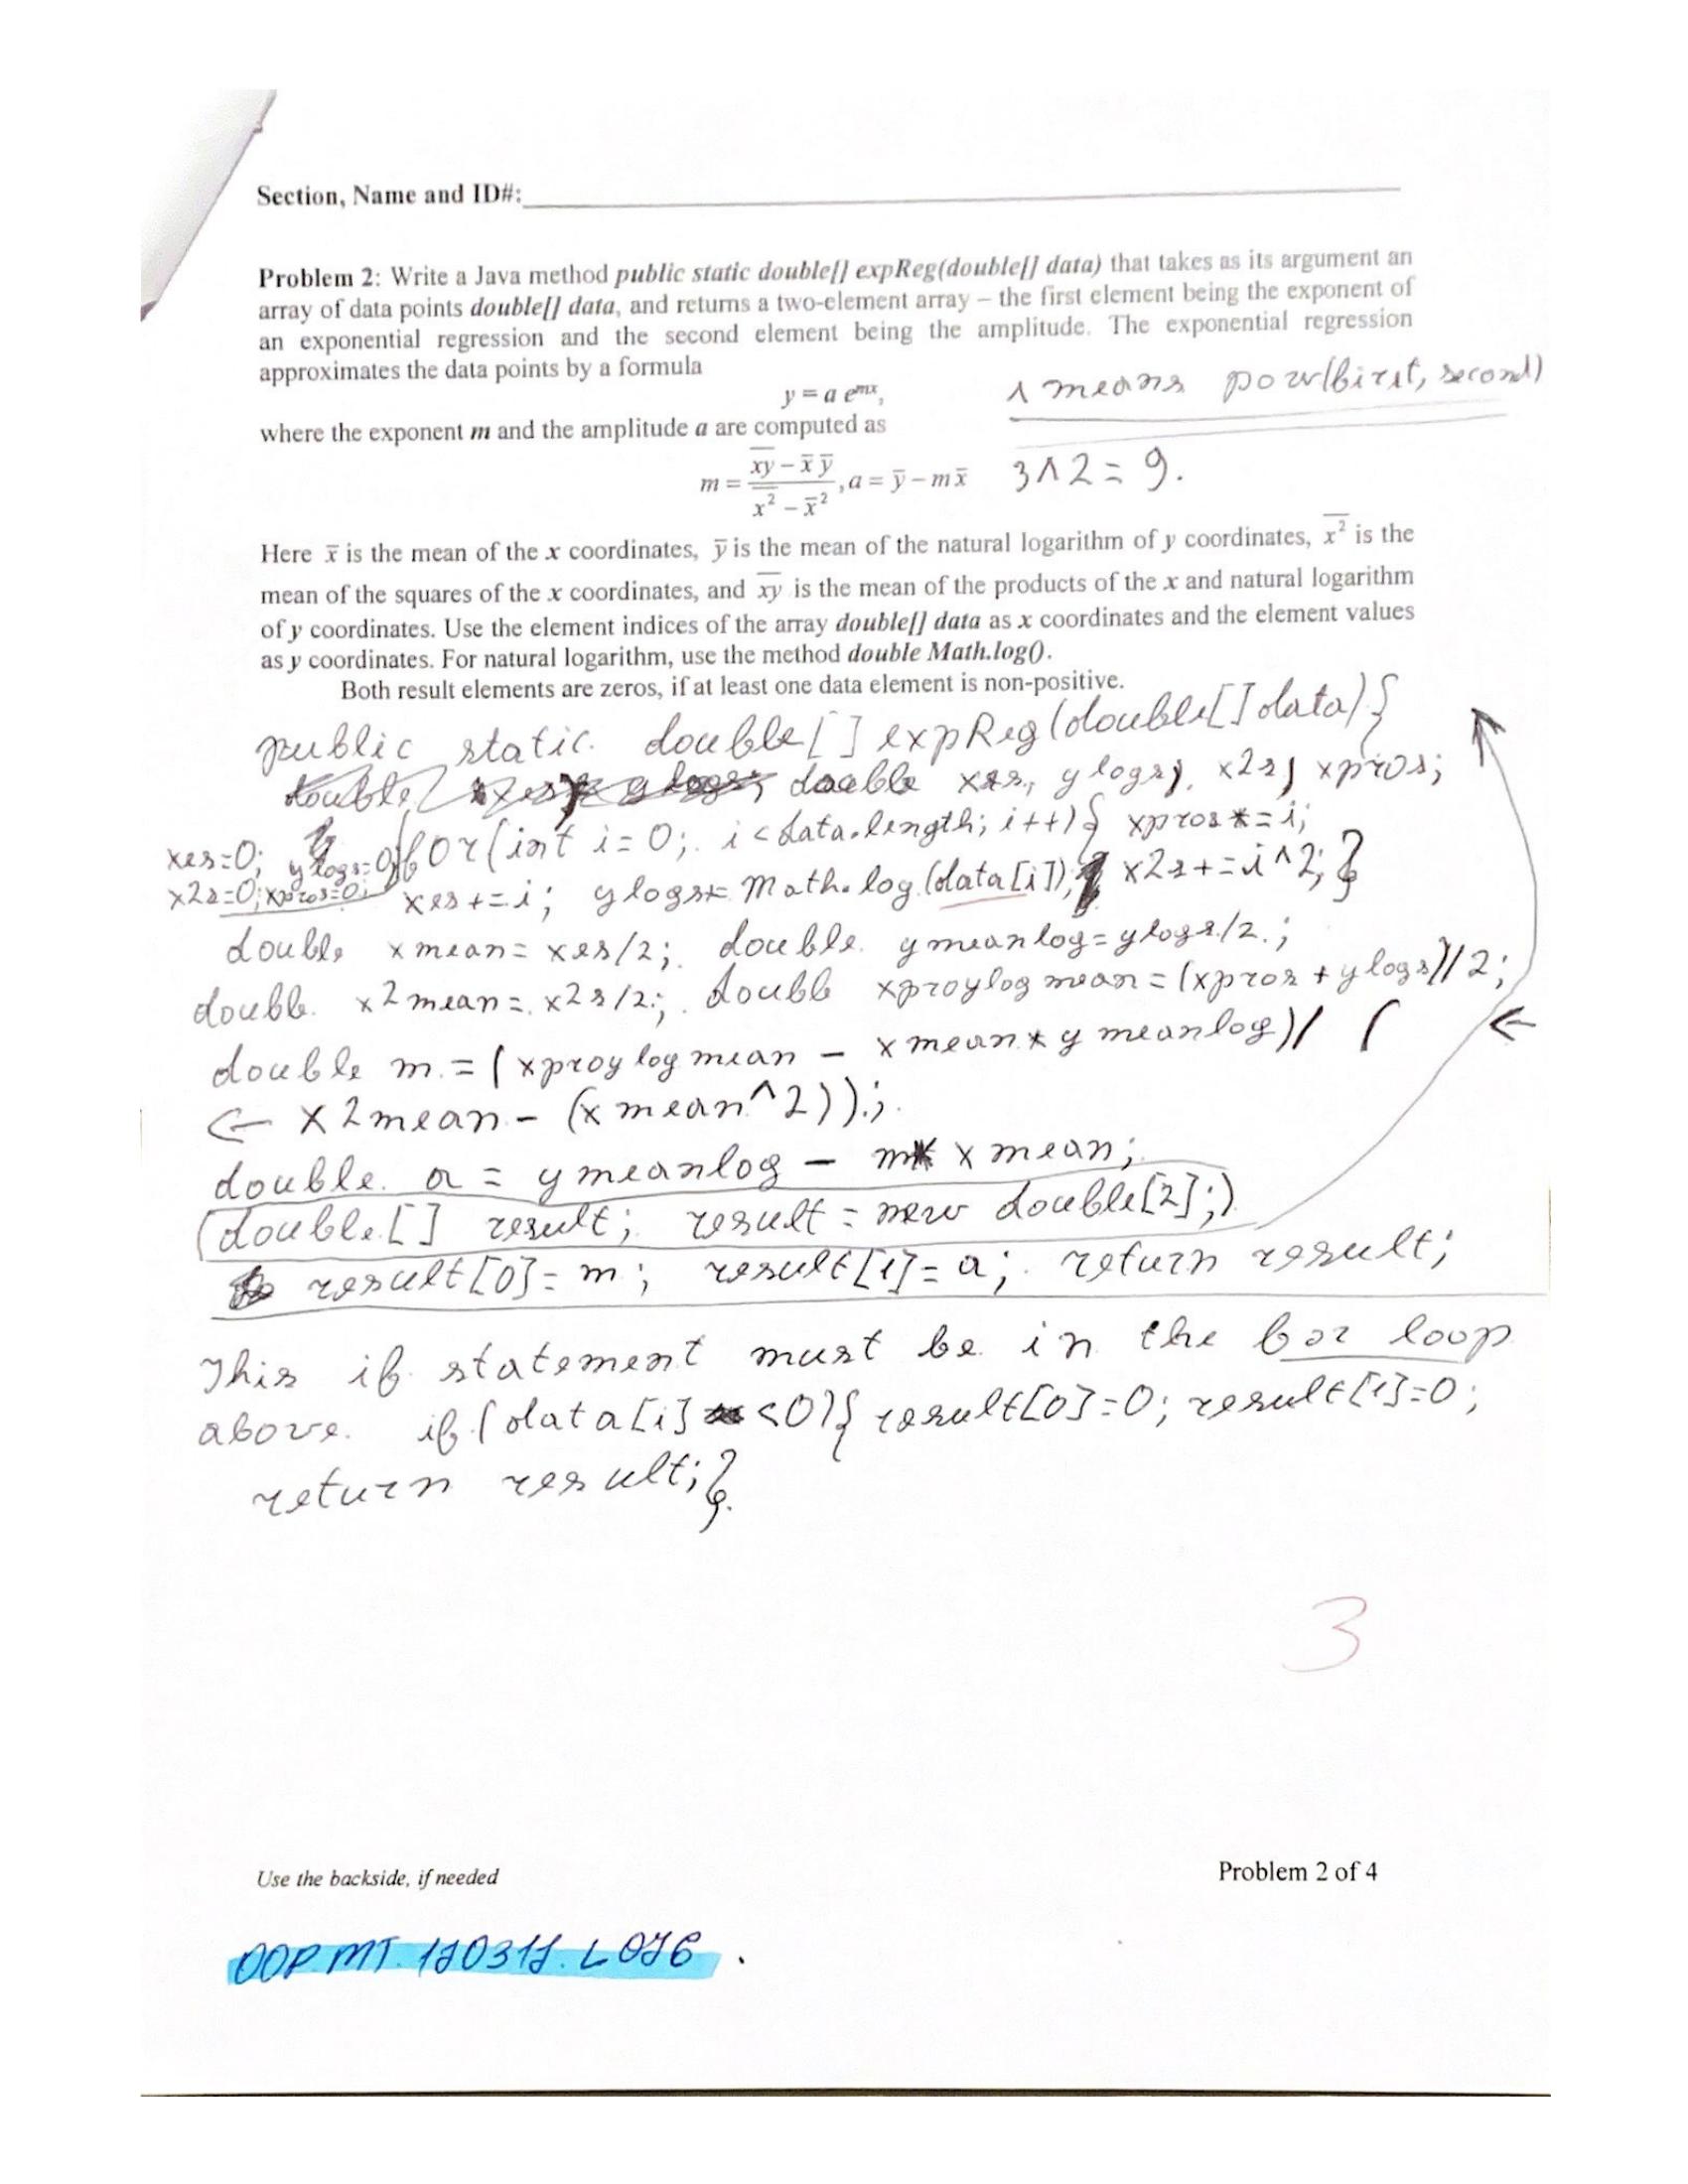 Section, Name and ID#:
Problem 2: Write a Java method public static double[] expReg(double[] data) that takes as its argument an
array of data points double[] data, and returns a two-element array – the first element being the exponent of
an exponential regression and the second element being the amplitude. The exponential regression
approximates the data points by a formula
y = a e^{mx},
∧ means pow(first, second)
where the exponent m and the amplitude a are computed as
m = \frac{\overline{xy} - \bar{x}\,\bar{y}}{\overline{x^2} - \bar{x}^2}, a = ȳ – m x̄
3∧2 = 9.
Here x̄ is the mean of the x coordinates, ȳ is the mean of the natural logarithm of y coordinates, \overline{x^2} is the
mean of the squares of the x coordinates, and \overline{xy} is the mean of the products of the x and natural logarithm
of y coordinates. Use the element indices of the array double[] data as x coordinates and the element values
as y coordinates. For natural logarithm, use the method double Math.log().
Both result elements are zeros, if at least one data element is non-positive.
public static double[] expReg(double[] data){
double xes, ylogs, x2s, xpros;
xes=0; ylogs=0; for(int i=0; i<data.length; i++){ xpros*=i;
x2s=0; xpros=0; xes+=i; ylogs+= Math.log(data[i]); x2s+=i^2; }
double xmean= xes/2; double ymeanlog=ylogs/2.;
double x2mean= x2s/2; double xproylogmean=(xpros+ylogs)/2;
double m = (xproylogmean - xmean*ymeanlog)/ ( ←
← x2mean - (xmean^2));
double a = ymeanlog - m* xmean;
(double[] result; result = new double[2];)
result[0]= m; result[1]= a; return result;
This if statement must be in the for loop
above. if(data[i] <0){ result[0]=0; result[1]=0;
return result;}
3
Use the backside, if needed
Problem 2 of 4